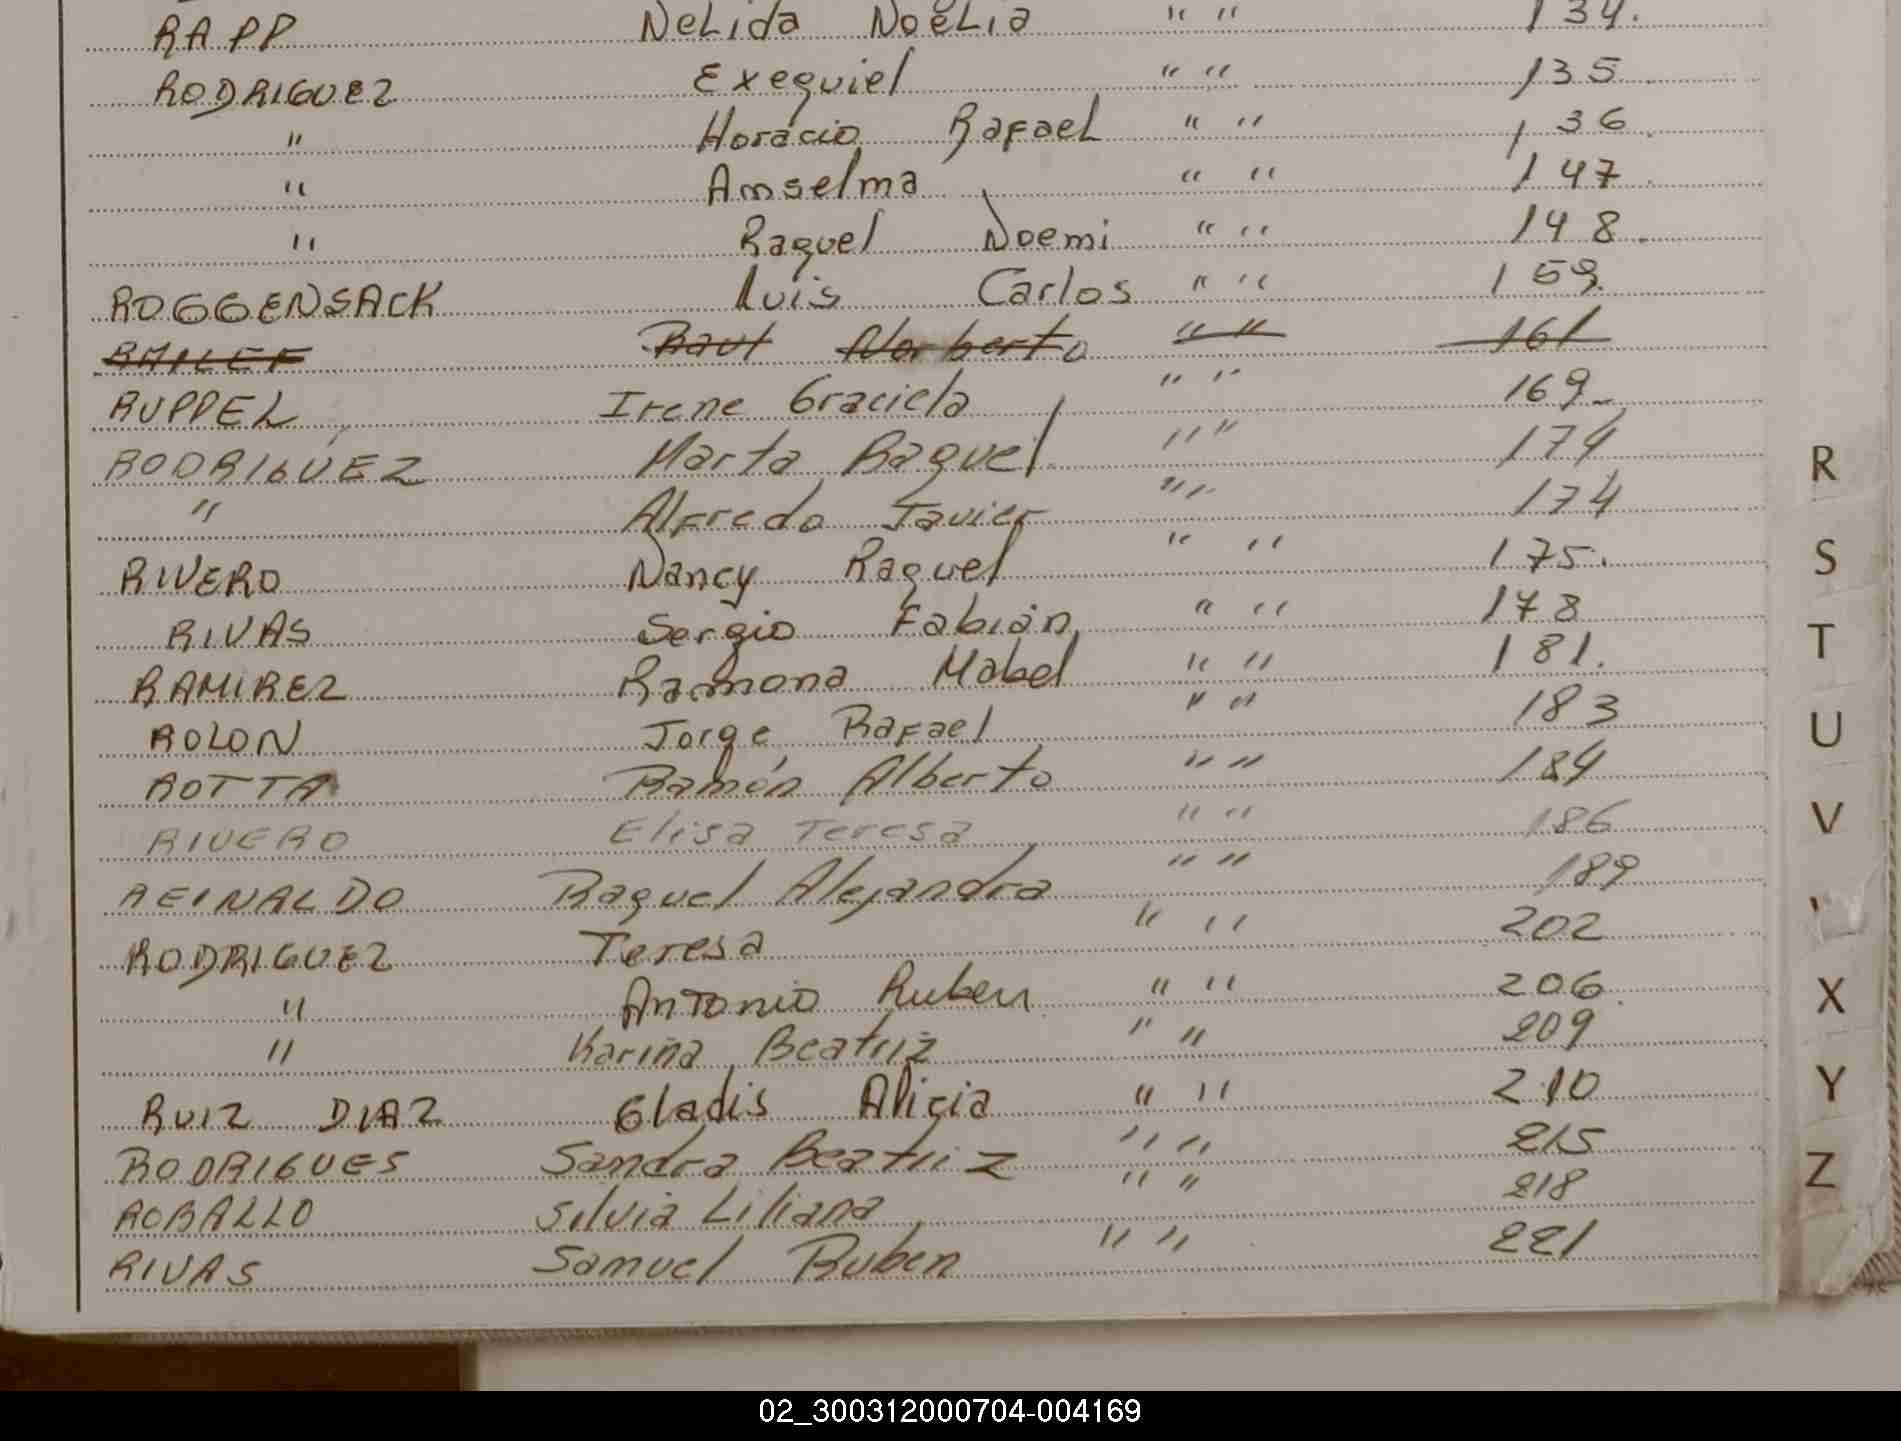 RAPP Nelida Noelia " " 134.
RODRIGUEZ Exequiel " " 135
" Horacio Rafael " " 136
" Anselma " " 147
" Raquel Noemi " " 148
ROGGENSACK Luis Carlos " " 159
Raul Norberto " " 161
RUPPEL Irene Graciela " " 169
RODRIGUEZ Marta Raquel " " 174
" Alfredo Javier " " 174
RIVERO Nancy Raquel " " 175.
RIVAS Sergio Fabián " " 178
RAMIREZ Ramona Mabel " " 181.
ROLON Jorge Rafael " " 183
ROTTA Ramón Alberto " " 184
RIVERO Elisa Teresa " " 186
REINALDO Raquel Alejandra " " 189
RODRIGUEZ Teresa " " 202
" Antonio Ruben " " 206
" Karina Beatriz " " 209
RUIZ DIAZ Gladis Alicia " " 210
RODRIGUES Sandra Beatriz " " 215
ROBALLO Silvia Liliana " " 218
RIVAS Samuel Ruben " " 221
R
S
T
U
V
X
Y
Z
02_300312000704-004169